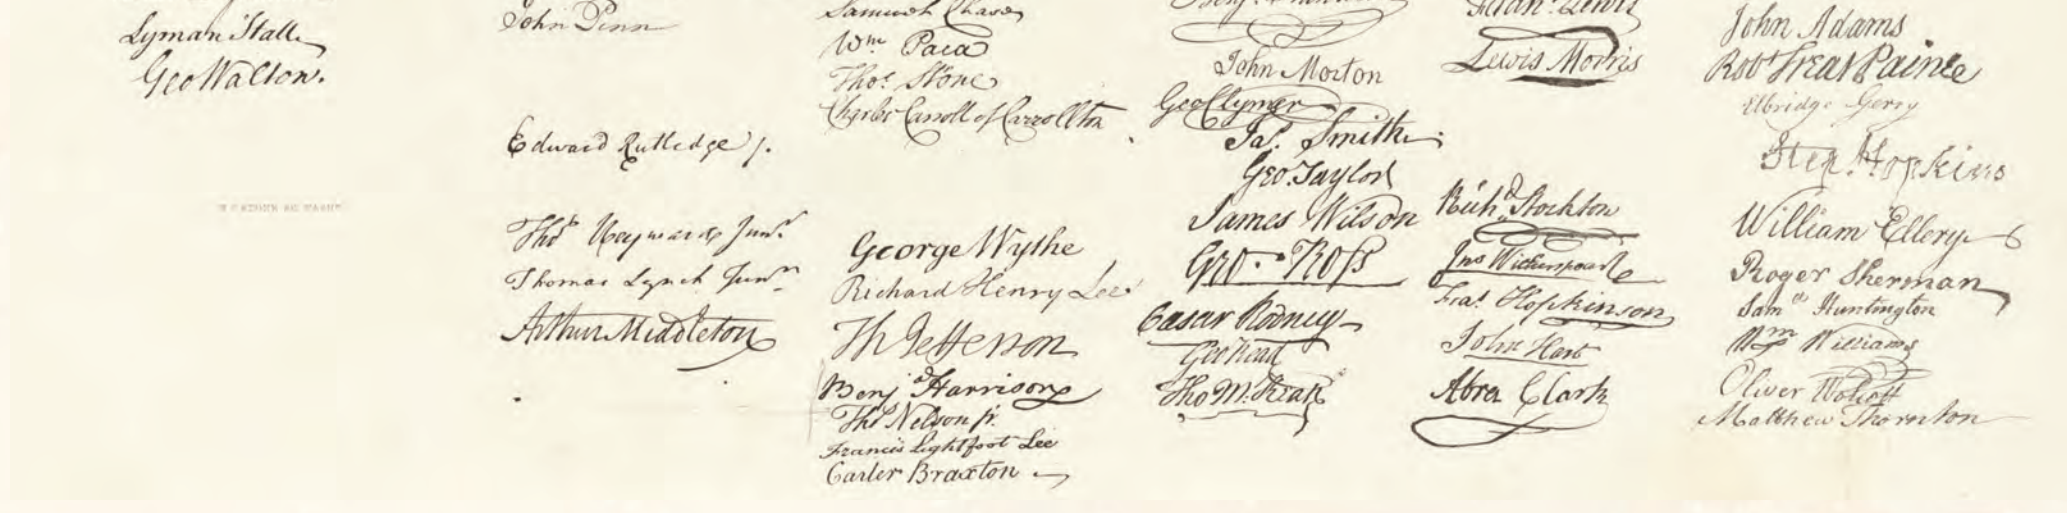 Lyman Hall
Geo Walton.
John Penn
Edward Rutledge /.
Thos Heyward Junr.
Thomas Lynch Junr.
Arthur Middleton
Samuel Chase
Wm. Paca
Thos. Stone
Charles Carroll of Carrollton
George Wythe
Richard Henry Lee
Th Jefferson
Benj Harrison
Thos Nelson jr.
Francis Lightfoot Lee
Carter Braxton
John Morton
Geo Clymer
Jas. Smith
Geo. Taylor
James Wilson
Geo. Ross
Caesar Rodney
Geo Read
Tho M:Kean
Lewis Morris
Richd. Stockton
Jno Witherspoon
Fras. Hopkinson
John Hart
Abra Clark
John Adams
Robt Treat Paine
Elbridge Gerry
Step. Hopkins
William Ellery
Roger Sherman
Saml Huntington
Wm Williams
Oliver Wolcott
Matthew Thornton